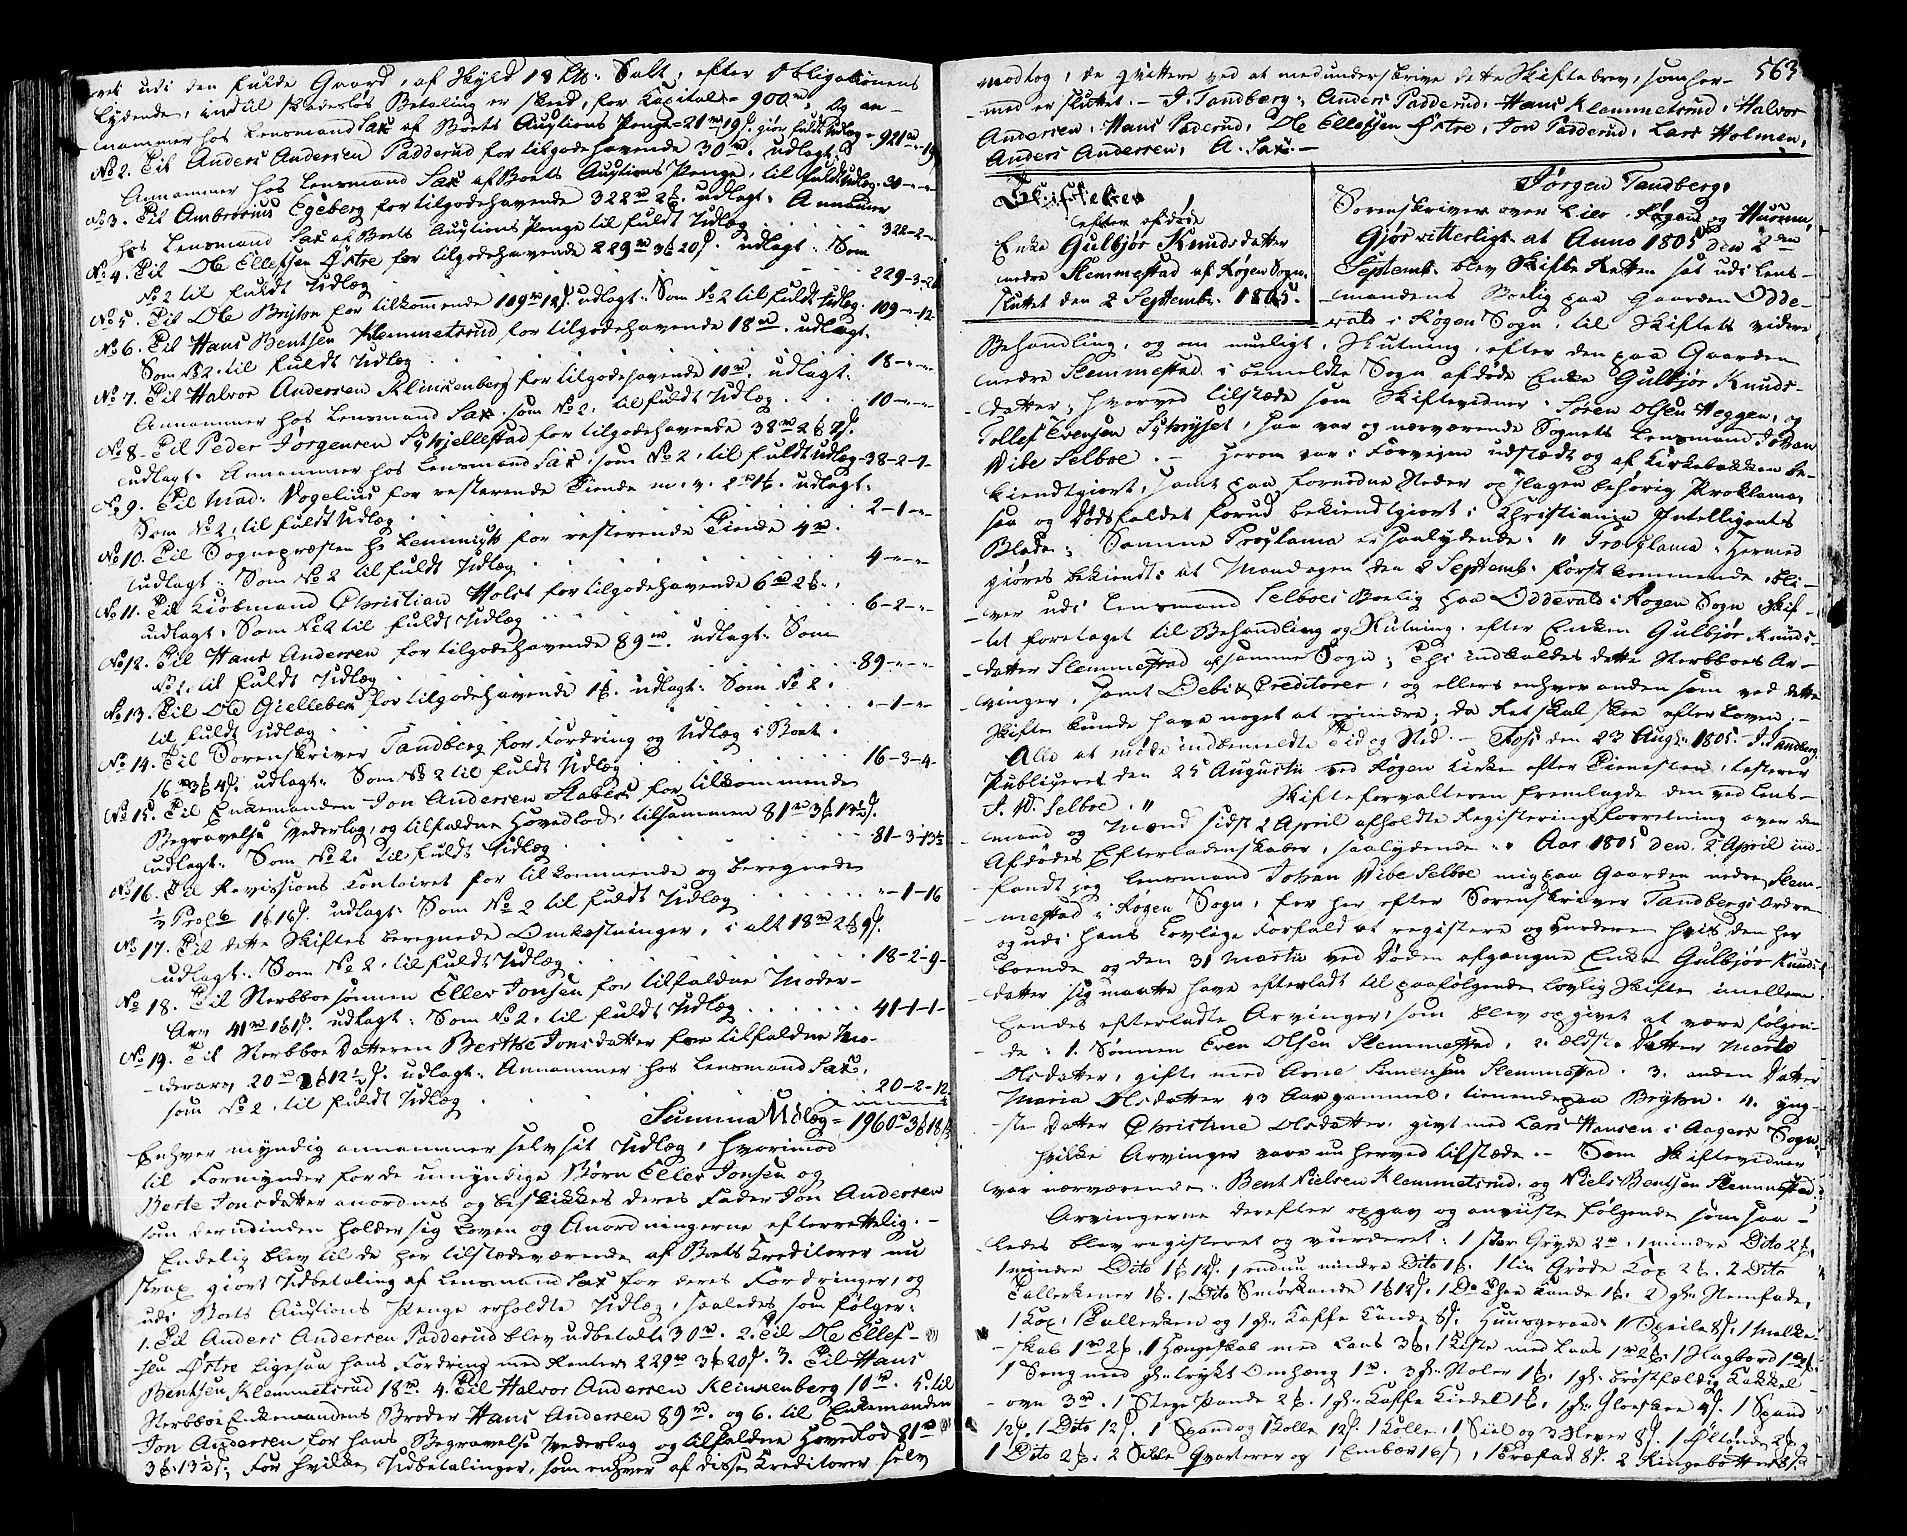 vet udi den fulde Gaard, af Skyld 18 Lb: Salt, efter Obligationens
lydende, indtil skadesløs Betaling er skeed, for Kapital 900 rd, Og an-
nammer hos Lensmand Sax af Boets Auctions Penge 21 rd 19 s. giør fuldt Udlæg 921 rd - 19
No 2. Til Anders Andersen Padderud for tilgodehavende 30 rd. udlagt:
Annammer hos Lensmand Sax af Boets Auctions Penge, til fuldt Udlæg 30-"-"
No 3. Til Ambrosius Egeberg for tilgodehavende 322 rd 2 udlagt: Annammer
hos Lensmand Sax af Boets Auctions Penge til fuldt Udlæg 322-2-"
No 4. Til Ole Ellefsen Østre for tilgodehavende 229 rd 3 20 s. udlagt: Som
No 2 til fuldt Udlæg 229-3-20
No 5. Til Ole Bryhn for tilkommende 109 rd 12 s. udlagt: Som No 2 til fuldt Udlæg 109-"-12
No 6. Til Hans Bentsen Klemmetsrud for tilgodehavende 18 rd. udlagt:
Som No 2 til fuldt Udlæg 18-"-"
No 7. Til Halvor Andersen Klinkenberg for tilgodehavende 10 rd. udlagt:
Annammer hos Lensmand Sax som No 2, til fuldt Udlæg 10-"-"
No 8. Til Peder Jørgensen Gjellestad for tilgodehavende 38 rd 2
udlagt: Annammer hos Lensmand Sax som No 2, til fuldt udlæg 38-2-
No 9. Til Mad: Vogelius for resterende Tiende m. v. 2 rd 1. udlagt:
Som No 2, til fuldt Udlæg 2-1-"
No 10. Til Sognepræsten Hr for resterende Tiende 4 rd.
udlagt: Som No 2 til fuldt Udlæg 4-"-"
No 11. Til Kiøbmand Christian Holst for tilgodehavende 6 rd 2
udlagt: Som No 2 til fuldt Udlæg 6-2-"
No 12. Til Hans Andersen for tilgodehavende 89 rd. udlagt: Som
No 2, til fuldt Udlæg 89-"-"
No 13. Til Ole Giellebek for tilgodehavende 1. udlagt: Som No 2.
til fuldt Udlæg "-1-"
No 14. Til Sorenskriver Tandberg for Fordring og Udlæg i Boet
16 rd 3 4 s. udlagt: Som No 2 til fuldt Udlæg 16-3-4
No 15. Til Enkemanden Jon Andersen for tilkommende
Begravelse Vederlag, og tilfaldne Hovedlod, tilsammen 81 rd 3 13½ s.
udlagt: Som No 2. til fuldt Udlæg 81-3-13½
No 16. Til Revisions Contoiret for tilkommende og beregnede
½ Proc 1 16 s. udlagt: Som No 2 til fuldt Udlæg "-1-16
No 17. Til dette Skiftes beregnede Omkostninger, i alt 18 rd 2 9 s.
udlagt: Som No 2, til fuldt Udlæg 18-2-9
No 18. Til Sterbboe sønnen Ellef Jonsen for tilfaldne Moder-
Arv 41 rd 1 1 s. udlagt: Som No 2, til fuldt Udlæg 41-1-1
No 19. Til Sterbboe Datteren Berthe Jonsdatter for tilfaldne Mo-
derarv 20 rd 2 12½ s. udlagt: Annammer hos Lensmand Sax,
som No 2, til fuldt Udlæg 20-2-12
Summa Udlæg = 1960 rd 3 18
Enhver myndig annammer selv sit Udlæg, hvorimod
til Formynder for de umyndige Børn Ellef Jonsen og
Berte Jonsdatter anordnes og beskikkes deres Fader Jon Andersen
som derudinden holder sig Loven og Anordningerne efterrettelig.-
Endelig blev til de her tilstædeværende af Boets Creditorer nu
strax giort Udbetaling af Lensmand Sax for deres Fordringer, og
udi Boets Auctions Penge erholdte Udlæg, saaledes som følger:
1. Til Anders Andersen Padderud blev udbetalt 30 rd. 2. Til Ole Ellef-
sen Østre ligesaa hans Fordring med Renter 229 rd 3 20 s. 3. Til Hans
Bentsen Klemmetsrud 18 rd. 4. Til Halvor Andersen Klinkenberg 10 rd. 5. til
Sterbboe Enkemandens Broder Hans Andersen 89 rd. og 6. til Enkemanden
Jon Andersen for hans Begravelse Vederlag og tilfaldne Hovedlod 81 rd
3 13½ s; For hvilke Udbetalinger, som enhver af disse Creditorer selv
563
modtog, de qvittere ved at medunderskrive dette Skiftebrev, som her-
med er sluttet.- J. Tandberg, Anders Padderud, Hans Klemmetsrud, Halvor
Andersen, Hans Paderud, Ole Ellefsen Østre, Jon Padderud, Lars Holmen,
Anders Andersen, A. Sax.-
Skiftebrev
efter afdøde
Enke Gulbjør Knudsdatter
nedre Slemmestad af Røgen Sogn,
sluttet den 2 Septembr. 1805.
Jørgen Tandberg,
Sorenskriver over Lier, Røgen og Hurum,
Gjør vitterligt at Anno 1805 den 2den
Septembr. blev Skifte Retten sat udi Lens-
mandens Boelig paa Gaarden Odde-
vald i Røgen Sogn, til Skiftets videre
Behandling, og om mueligt, Slutning, efter den paa Gaarden
nedre Slemmestad i bemeldte Sogn afdøde Enke Gulbjør Knuds-
datter, hvorved tilstæde som Skiftevidner: Søren Olsen Heggen, og
Tollef Evensen, saa var og nærværende Sognets Lensmand Johan
Vibe Selboe.- Herom var i Forveien udstædt og af Kirkebakken be-
kiendtgiort, samt paa fornødne Steder opslagen behørig Proklama,
saa og Dødsfaldet forud bekiendtgiort i Christiania Intelligents
Blade; Samme Proclama er saalydende: "Proclama: Hermed
giøres bekiendt: at Mandagen den 2 Septembr. førstkommende, bli-
ver udi Lensmand Selboes Boelig paa Oddevald i Røgen Sogn Skif-
tet foretaget til Behandling og Slutning, efter Enken Gulbjør Knuds-
datter Slemmestad af samme Sogn; Thi indkaldes dette Sterbboes Ar-
vinger, samt Debit & Creditorer, og ellers enhver anden som ved dette
Skifte kunde have noget at erindre; da Ret skal skee efter Loven;-
Alle at møde indbemeldte Tid og Sted.- Foss den 23 Aug: 1805. J. Tandberg.
Publiceret den 25 Augustii ved Røgen Kirke efter Tienesten, testerer
J. V. Selboe." Skifteforvalteren fremlagde den ved Lens-
mand og Mænd sidst 2 April afholdte Registerings Forretning over den
Afdødes Efterladenskaber, saalydende: "Aar 1805 den 2 April ind-
fandt jeg Lensmand Johan Vibe Selboe mig paa Gaarden nedre Slem-
mestad i Røgen Sogn, for her efter Sorenskriver Tandbergs Ordre
og udi hans Lovlige Forfald at registere og vurdere hvis den her
boende og den 31 Martii ved Døden afgangne Enke Gulbjør Knuds-
datter sig maatte have efterladt til paafølgende lovlig Skifte imellem
hendes efterladte Arvinger, som blev opgivet at være følgen-
de: 1. Sønnen Even Olsen Slemmestad, 2. ældste Datter Marte
Olsdatter, gifte med Arne Simensen Slemmestad. 3. anden Datter
Maria Olsdatter 43 Aar gammel, tienende paa Bryhn. 4. yng-
ste Datter Christine Olsdatter, givt med Lars Hansen i Aagers Sogn,
hvilke Arvinger vare nu herved tilstæde.- Som Skiftevidner
var nærværende: Bent Nielsen Klemmetsrud, og Niels Bentsen Slemmestad.
Arvingerne derefter opgav og anviiste følgende som saa-
ledes blev registeret og vurderet: 1 stor Gryde 2 rd, 1 mindre Dito 2,
1 mindre Dito 1 12 s. 1 endnu mindre Dito 1. 1 liden Grøde Kop 2. 2 Dito
Tallerkener 1. 1 Dito Smørkande 1 12 s. 1 Do Thee Kande 1. 2 gl: Steenfade,
1 Kop, 1 Tallerken og 1 gl: Kaffe Kande 8 s. Huusgeraad: 1 Speile 8 s. 1 Melke-
skab 1 rd 2. 1 Hængeskab med Laas 3, 1 Kiste med Laas 1 rd 2. 1 Slagbord 1 rd 2.
1 Seng med gl: trykt Omhæng 1 rd. 3 gl: Stoler 1. 1 gl: brøstfældig Kakkel-
ovn 3 rd. 1 Stege Pande 2. 1 gl: Kaffe Kiedel 1, 1 gl: Gloeskee 4 s. 1 Spand
12 s. 1 Dito 12 s. 1 Spand og 1 Kolle 12 s. 1 Kolle, 1 Siel og 3 Kever 8 s. 1 Øltønde 2.
1 Dito 2. 2 Sikke Qvarterer og 1 Embær 16 s, 1 Træfad 8 s. 2 Ringebøtter 8 s.